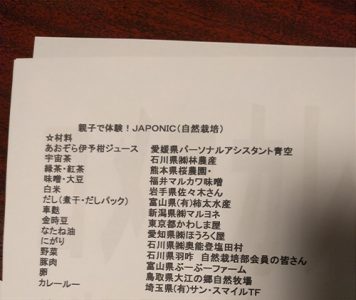 親子で体験！JAPONIC（自然栽培）
☆材料
あおぞら伊予柑ジュース 愛媛県パーソナルアシスタント青空
宇宙茶 石川県㈱林農産
緑茶・紅茶 熊本県桜農園・
味噌・大豆 福井マルカワ味噌
白米 岩手県佐々木さん
だし（煮干・だしパック） 富山県(有)柿太水産
車麩 新潟県㈱マルヨネ
金時豆 東京都かわしま屋
なたね油 愛知県㈱ほうろく屋
にがり 石川県㈱奥能登塩田村
野菜 石川県羽咋 自然栽培部会員の皆さん
豚肉 富山県ぶーぶーファーム
卵 鳥取県大江の郷自然牧場
カレールー 埼玉県(有)サン・スマイルTF